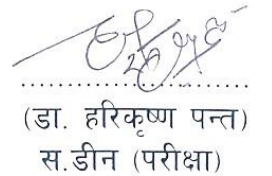 ....................
(डा. हरिकृष्ण पन्त)
स.डीन (परीक्षा)